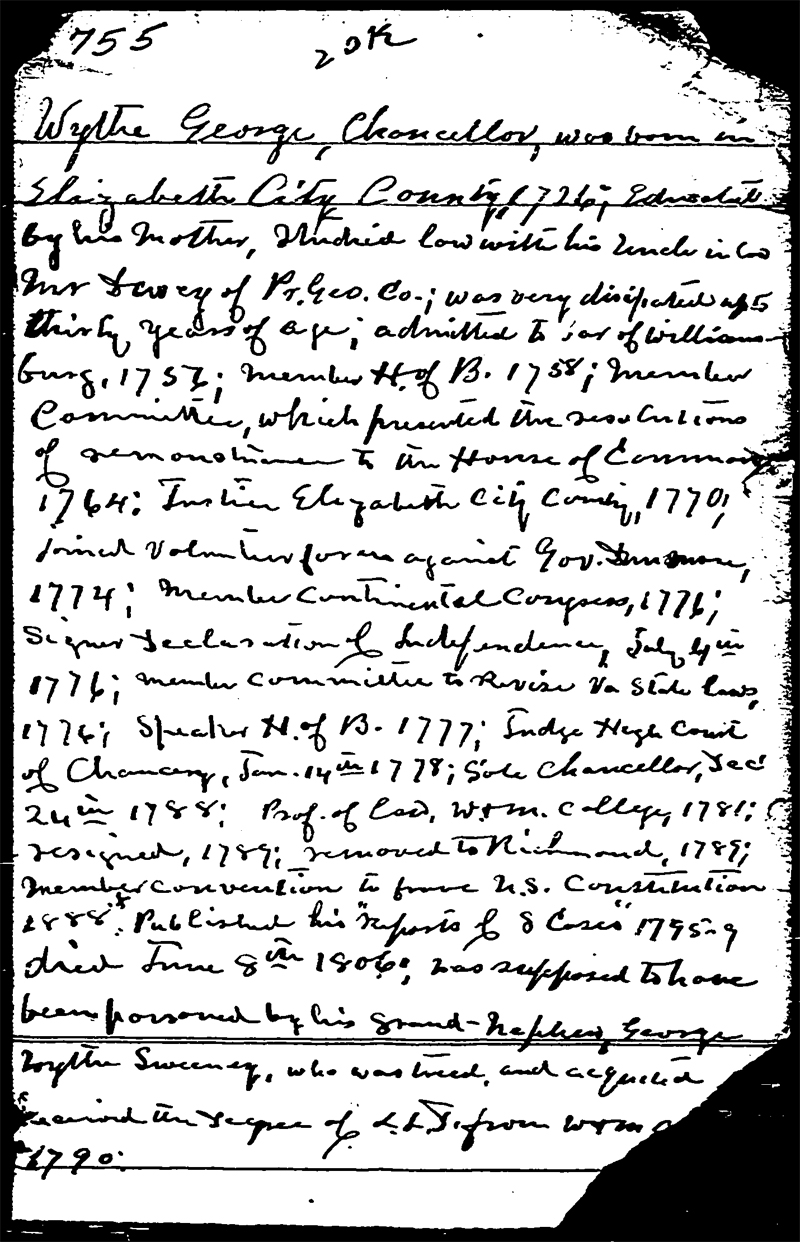 755
Wythe George, Chancellor, was born in
Elizabeth City County, 1726; Educated
by his Mother, Studied law with his Uncle in law
Mr Dewey of Pr. Geo. Co.; was very disipated up to
thirty years of age; admitted to bar of Williams-
burg, 1757; member H. of B. 1758; Member
Committee, which presented the resolutions
of remonstrance to the House of Commons
1764: Justice Elizabeth City County, 1770;
joined Volunteer forces against Gov. Dunmore,
1774; Member Continental Congress, 1776;
Signer Declaration of Independence, July 4th
1776; member committee to Revise Va State laws,
1776; Speaker H. of B. 1777; Judge High Court
of Chancery, Jan. 14th 1778; Sole Chancellor, Dec
24th 1788; Prof. of Law, W+M. College, 1781;
resigned, 1789; removed to Richmond, 1789;
Member convention to frame U.S. Constitution
1888. Published his "reports of 8 Cases" 1795-9
died June 8th 1806; was supposed to have
been poisoned by his grand-Nephew, George
Wythe Sweeney, who was tried, and acquited
received the Degree of L.L.D. from W+M
1790.